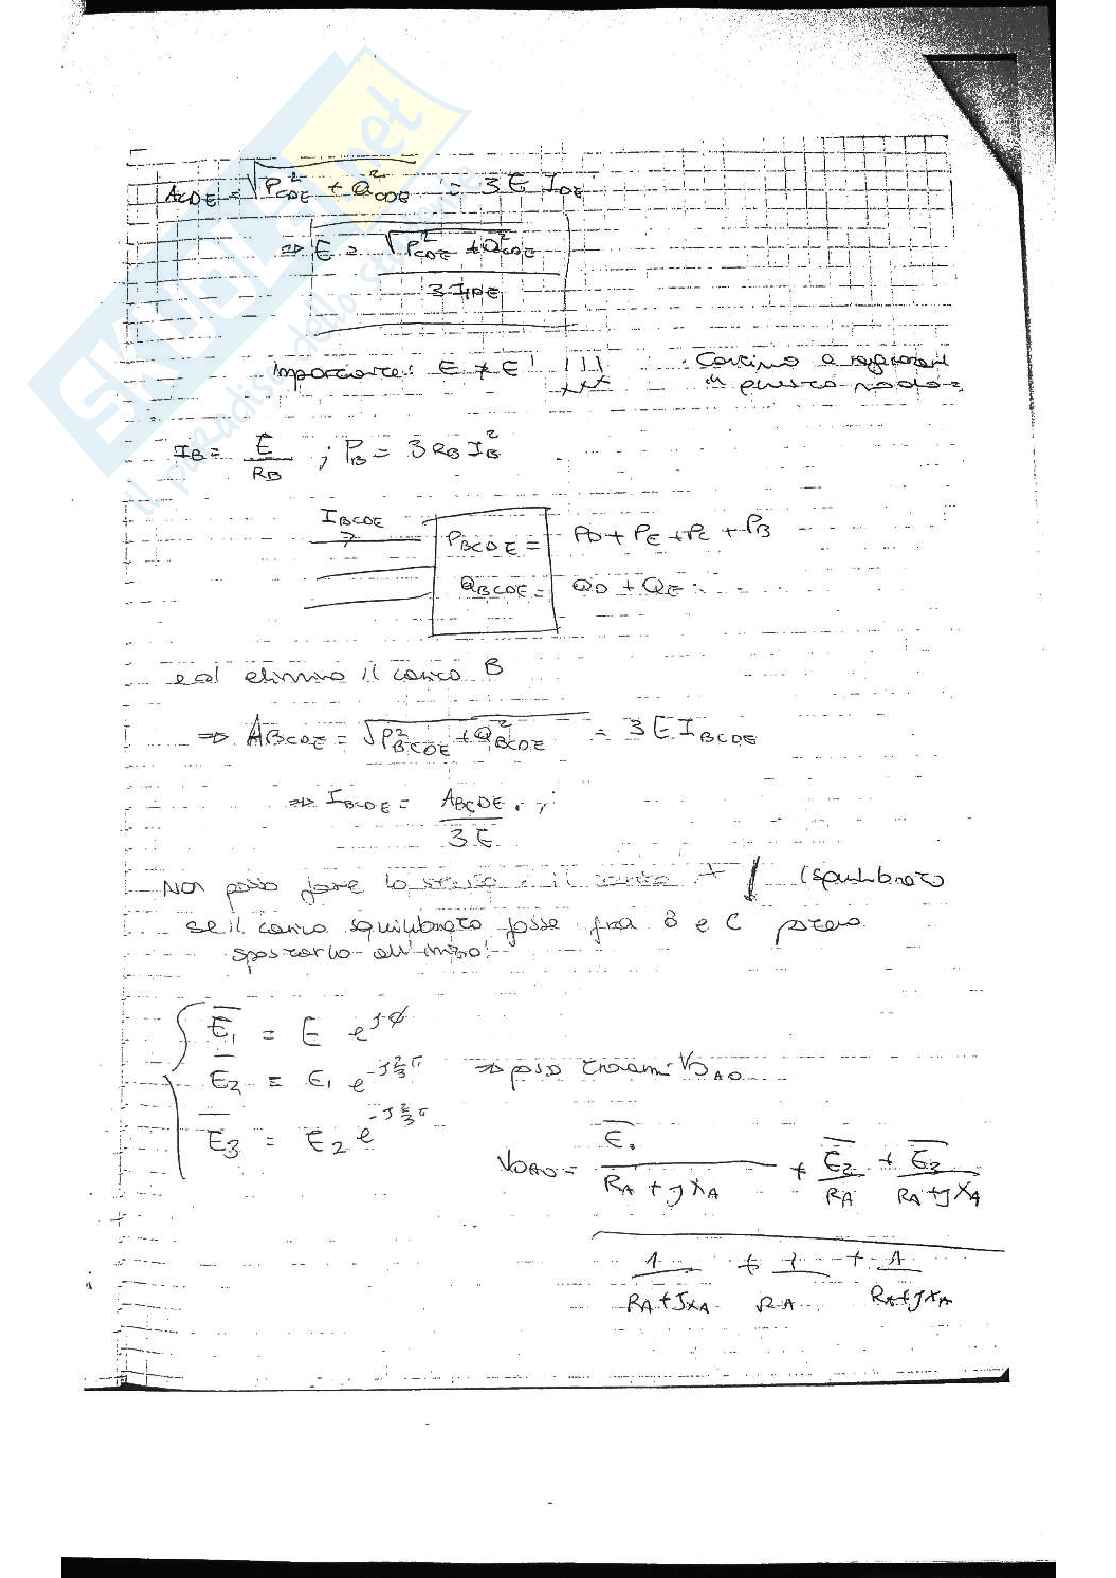 A_CDE = √(P²_CDE + Q²_CDE) = 3 E I_DE
⇒ E = √(P²_CDE + Q²_CDE) / 3 I_DE
Importante: E ≠ E' !!! Continuo a ragionare
in questo modo:
I_B = E / R_B ; P_B = 3 R_B I_B²
I_BCDE
P_BCDE = P_D + P_E + P_C + P_B
Q_BCDE = Q_D + Q_E
e così elimino il carico B
⇒ A_BCDE = √(P²_BCDE + Q²_BCDE) = 3 E I_BCDE
⇒ I_BCDE = A_BCDE / 3 E ;
Non posso fare lo stesso il carico A (squilibrato
se il carico squilibrato fosse fra B e C potevo
spostarlo all'inizio!
E̅₁ = E e^{jφ}
E̅₂ = E₁ e^{-j 2/3 π} ⇒ posso trovarmi V_OAO
E̅₃ = E₂ e^{-j 2/3 π}
V_OAO = E̅₁ / (R_A + jX_A) + E̅₂ / R_A + E̅₃ / (R_A + jX_A)
1 / (R_A + jX_A) + 1 / R_A + 1 / (R_A + jX_A)
SKUOLA.net
il paradiso dello studente